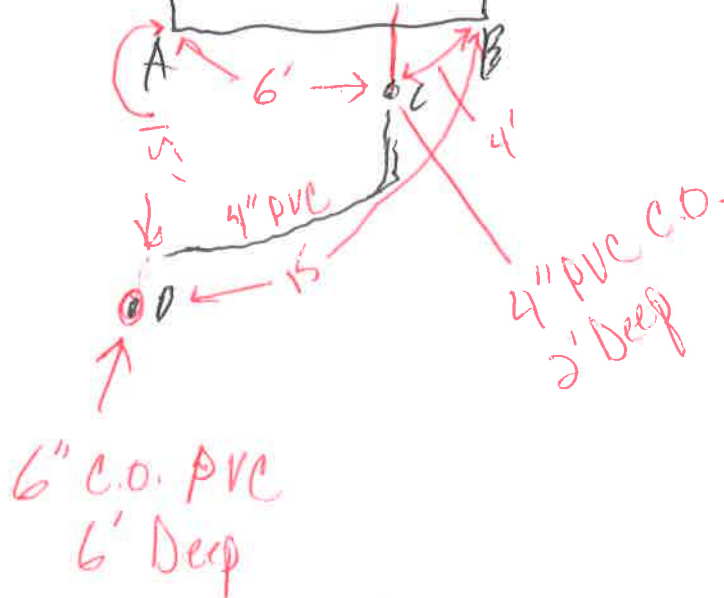 A
B
6'
C
4'
15'
4" PVC
15
D
4" PVC C.O.
2' Deep
6" C.O. PVC
6' Deep